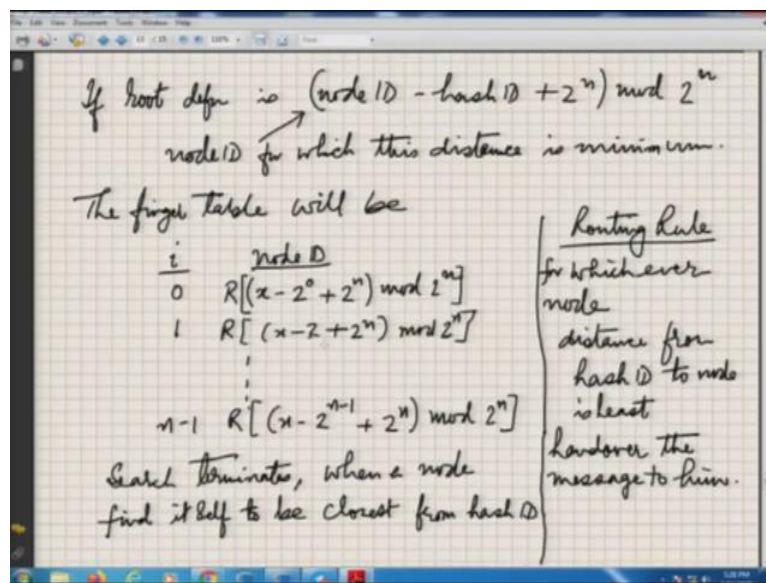 File Edit View Document Tools Window Help
If root defn is (node ID - hash ID + 2^n) mod 2^n
node ID for which this distance is minimum.
The finger table will be
i node ID
0 R[(x - 2^0 + 2^n) mod 2^n]
1 R[(x - 2 + 2^n) mod 2^n]
n-1 R[(x - 2^{n-1} + 2^n) mod 2^n]
Search terminates, when a node
find itself to be closest from hash ID
Routing Rule
for whichever
node
distance from
hash ID to node
is least
handover the
message to him.
5:28 PM